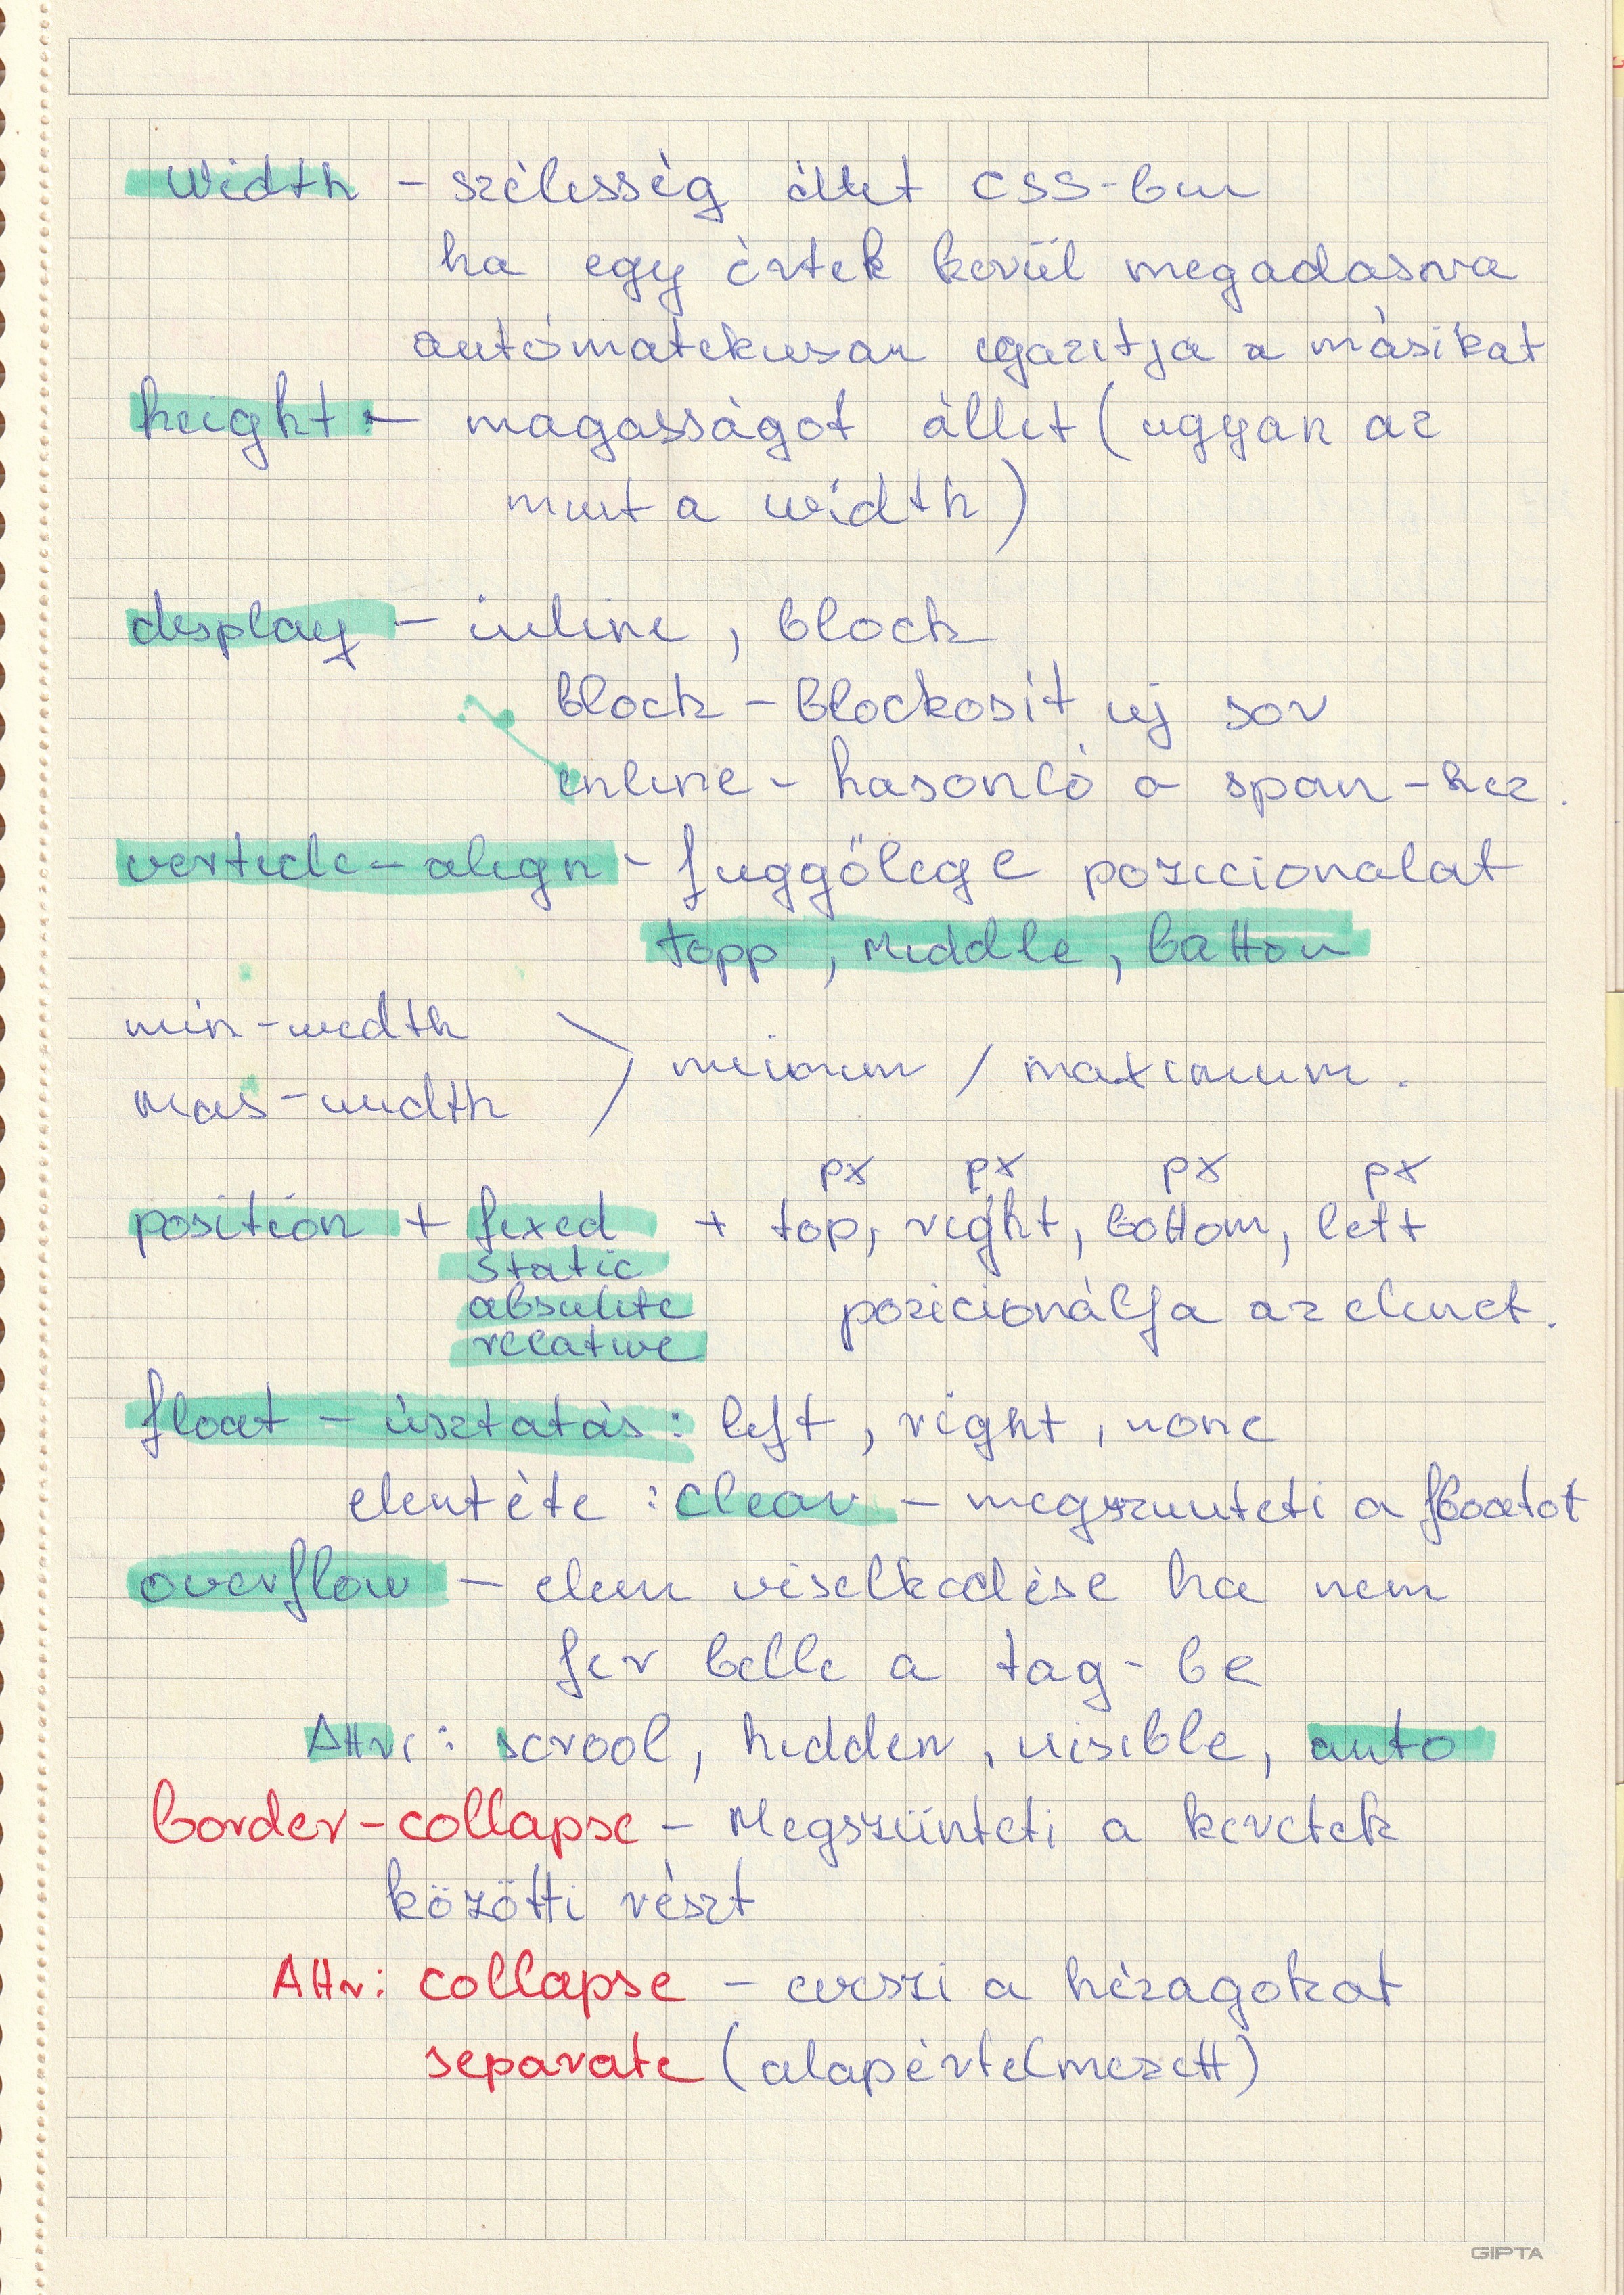 width - szélesség állít CSS-ben
ha egy értek kerül megadasra
autómatikusan igazitja a másikat
height: - magasságot állít (ugyan az
mint a width)
display - inline, block
block - Blockosít uj sor
inline - hasonló a span-hez.
verticle-align - fuggőlege pozicionalat
topp, middle, batton
min-width
mas-width > minimum / maximum.
px px px px
position + fixed + top, right, bottom, left
static
absulute pozicionálja az elemet.
relative
float - úsztatás: left, right, none
elentéte: clear - megszunteti a floatot
overflow - elem viselkedése ha nem
fer belle a tag-be
Attri: scrool, hidden, visible, auto
border-collapse - Megszünteti a keretek
közötti részt
Attr: collapse - eveszi a hézagokat
separate (alapértelmezett)
GIPTA